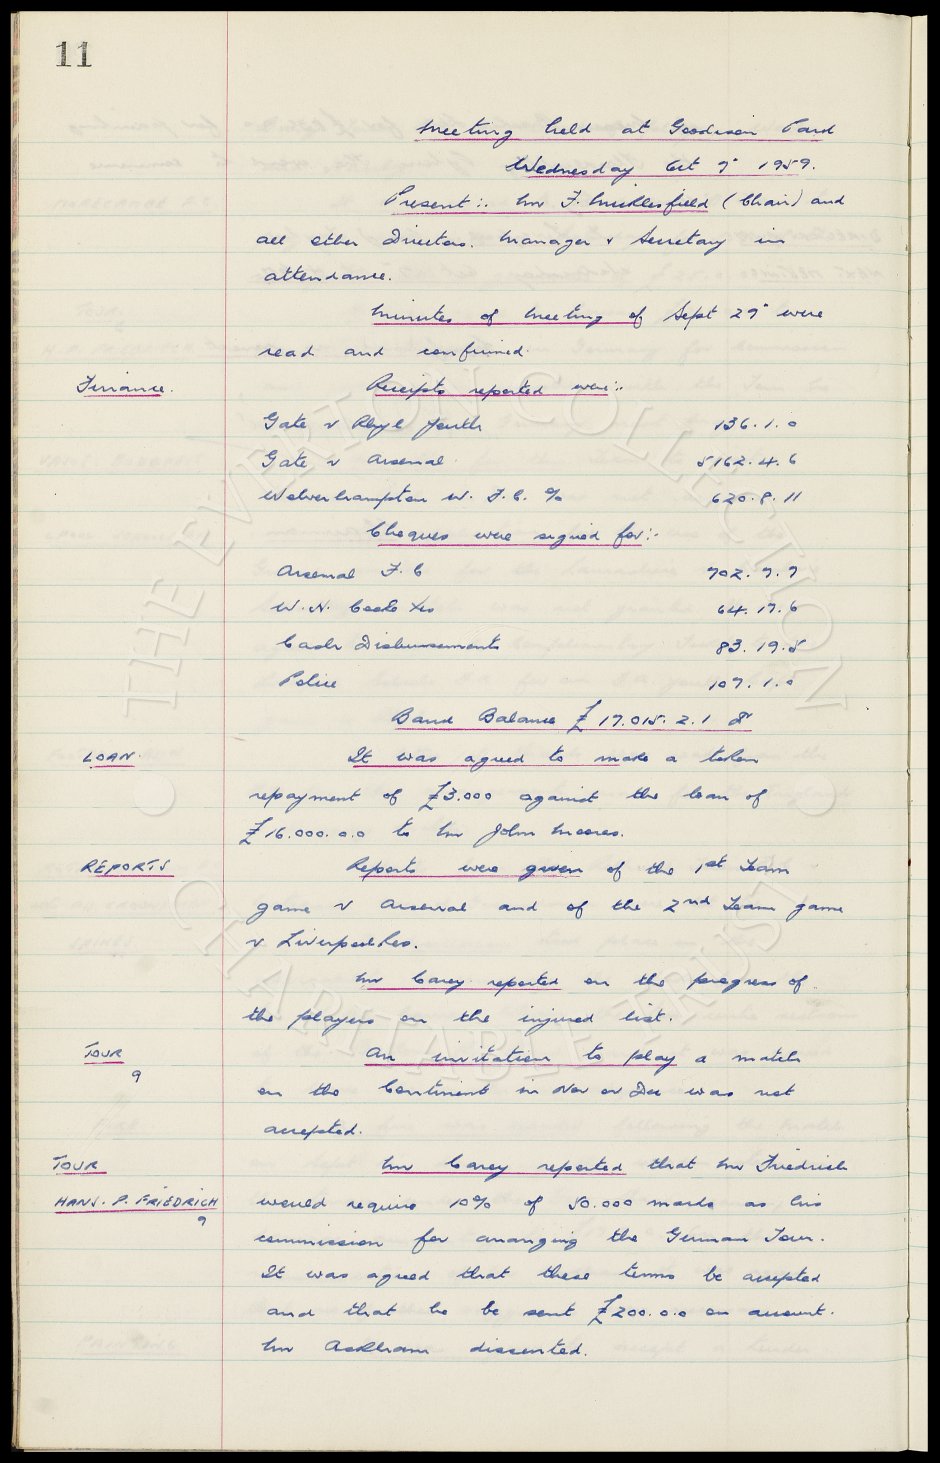 11
Meeting held at Goodison Park
Wednesday Oct 7" 1959.
Present:: Mr F. Micklesfield (Chair) and
all other Directors. Manager & Secretary in
attendance.
Minutes of Meeting of Sept 29" were
read and confirmed.
Finance. Receipts reported were::
Gate v Rhyl Youth 136.1.0
Gate v Arsenal 5162.4.6
Wolverhampton W. F.C. % 620.8.11
Cheques were signed for:-
Arsenal F.C 702.7.7
W.N. 64.17.6
Cash Disbursements 83.19.5
Police 107.1.0
Bank Balance £17.015.2.1 Dr
LOAN. It was agreed to make a token
repayment of £3.000 against the loan of
£16.000.0.0 to Mr John Moores.
REPORTS Reports were given of the 1st Team
game v Arsenal and of the 2nd Team game
v Liverpool Res.
Mr Carey reported on the progress of
the players on the injured list.
TOUR An invitation to play a match
9
on the Continent in Nov or Dec was not
accepted.
TOUR Mr Carey reported that Mr Friedrich
HANS. P. FRIEDRICH would require 10% of 50.000 marks as his
9
commission for arranging the German Tour.
It was agreed that these terms be accepted
and that he be sent £200.0.0 on account.
Mr Askham dissented.
© THE EVERTON COLLECTION
CHARITABLE TRUST ©